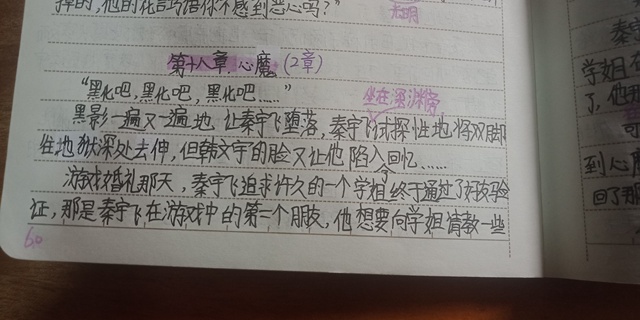 掉的,他的花言巧语你不感到恶心吗?”
光明
第十八章.心魔 (2章)
“黑化吧,黑化吧,黑化吧……”
坐在深渊旁
黑影一遍又一遍地让秦宇飞堕落,秦宇飞试探性地将双脚
往地狱深处去伸,但韩文宇的脸又让他陷入回忆……
游戏婚礼那天,秦宇飞追求许久的一个学姐终于通过了好友验
证,那是秦宇飞在游戏中的第三个朋友,他想要向学姐请教一些
60
秦宇
学姐在
了,他
可
到心魔
回了那